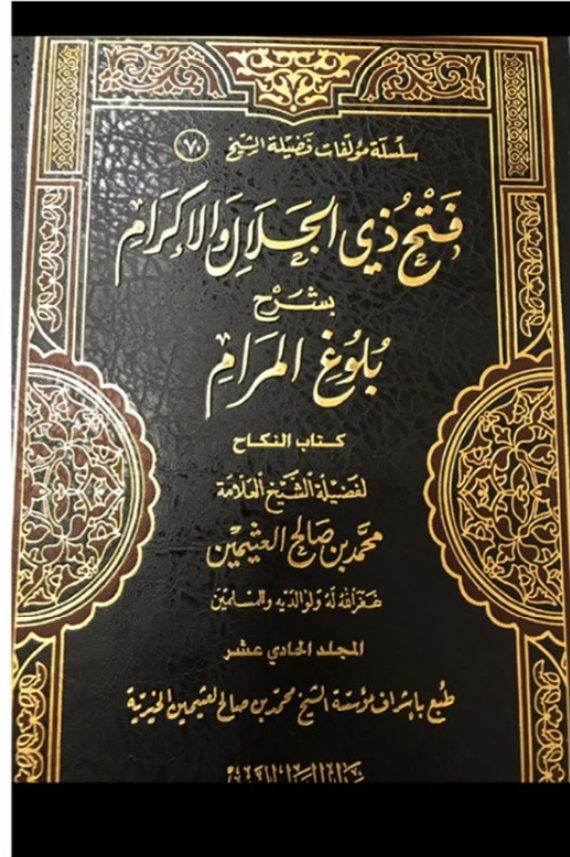 سلسلة مؤلفات فضيلة الشيخ ٧٠
فَتْحُ ذِي الجَلَالِ وَالإِكْرَامِ
بِشَرْحِ
بُلُوغِ المَرَامِ
كتاب النكاح
لفَضِيلَة الشَّيْخِ العَلَّامَة
محمَّد بن صَالح العثيمين
غفَر الله لَهُ ولوَالدَيْه وللمُسلمِيْن
المجلد الحادي عشر
طُبعَ بإشراف مؤسّسة الشيخ محمّد بن صالح العثيمين الخيرية